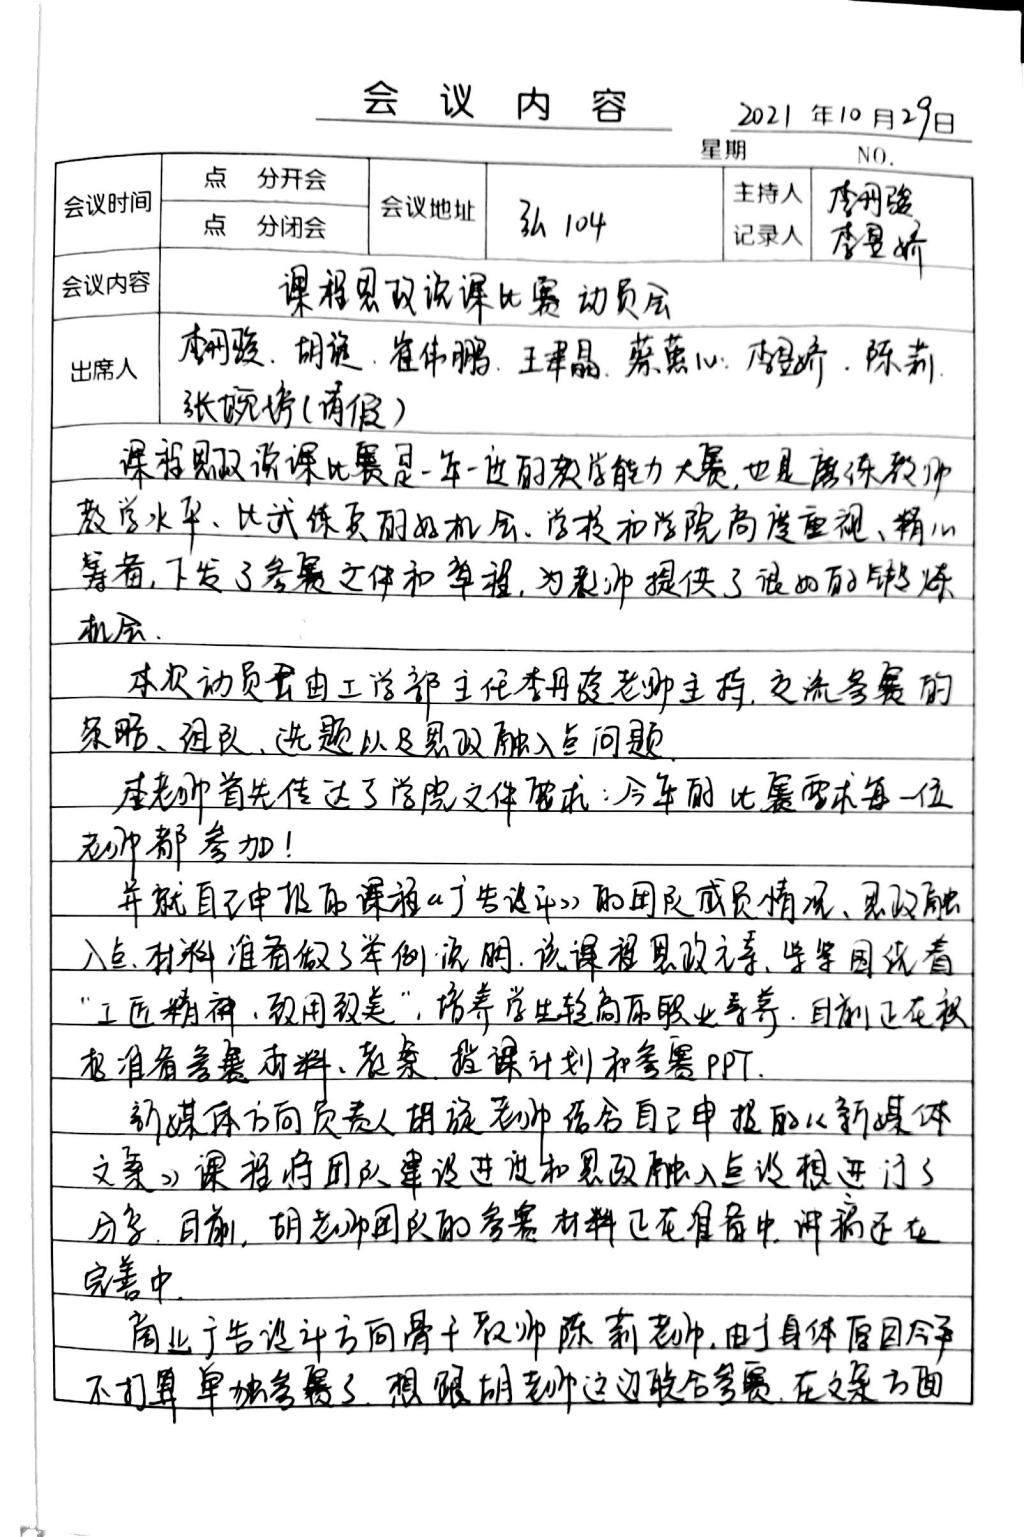 会议内容
2021年10月29日
星期 NO.
会议时间 点 分开会 会议地址 弘104 主持人 李丹骏
点 分闭会 记录人 李星娇
会议内容 课程思政说课比赛动员会
出席人 李丹骏、胡旋、崔伟鹏、王聿晶、蔡蕙心、李星娇、陈莉、
张婉婷(请假)
课程思政说课比赛是一年一度的教学能力大赛,也是磨练教师
教学水平、比武练兵的好机会、学校和学院高度重视、精心
筹备,下发了参赛文件和章程,为老师提供了很好的锻炼
机会.
本次动员会由工学部主任李丹骏老师主持,交流参赛的
策略、组队、选题以及思政融入点问题.
李老师首先传达了学院文件要求:今年的比赛要求每一位
老师都参加!
并就自己申报的课程《广告设计》的团队成员情况、思政融
入点、材料准备做了举例说明.该课程思政元素、紧紧围绕着
“工匠精神、致用致美”,培养学生较高的职业素养.目前正在积
极准备参赛材料、教案、授课计划和参赛PPT.
新媒体方向负责人胡旋老师结合自己申报的《新媒体
文案》课程将团队建设进度和思政融入点设想进行了
分享.目前,胡老师团队的参赛材料正在准备中,讲稿还在
完善中.
商业广告设计方向骨干教师陈莉老师,由于身体原因今年
不打算单独参赛了.想跟胡老师这边联合参赛,在文案方面